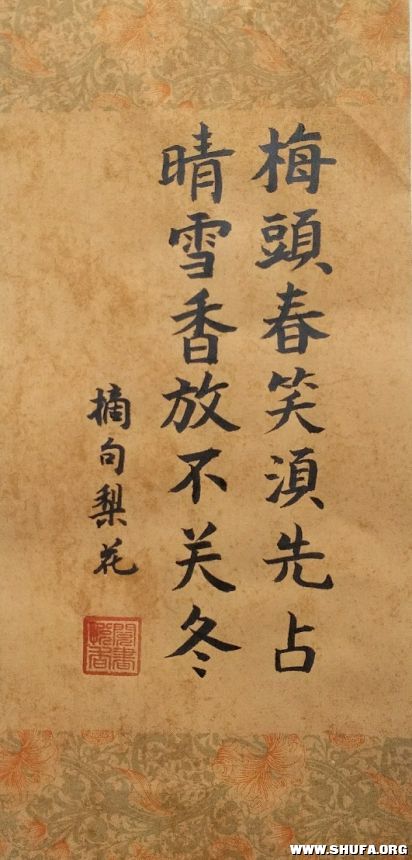 梅頭春笑湏先占
晴雪香放不关冬
摘句梨花
WWW.SHUFA.ORG